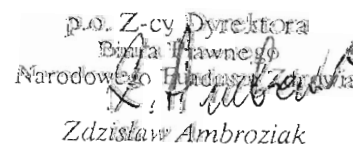 p.o. Z-cy Dyrektora
Biura Prawnego
Narodowego Funduszu Zdrowia
Zdzisław Ambroziak